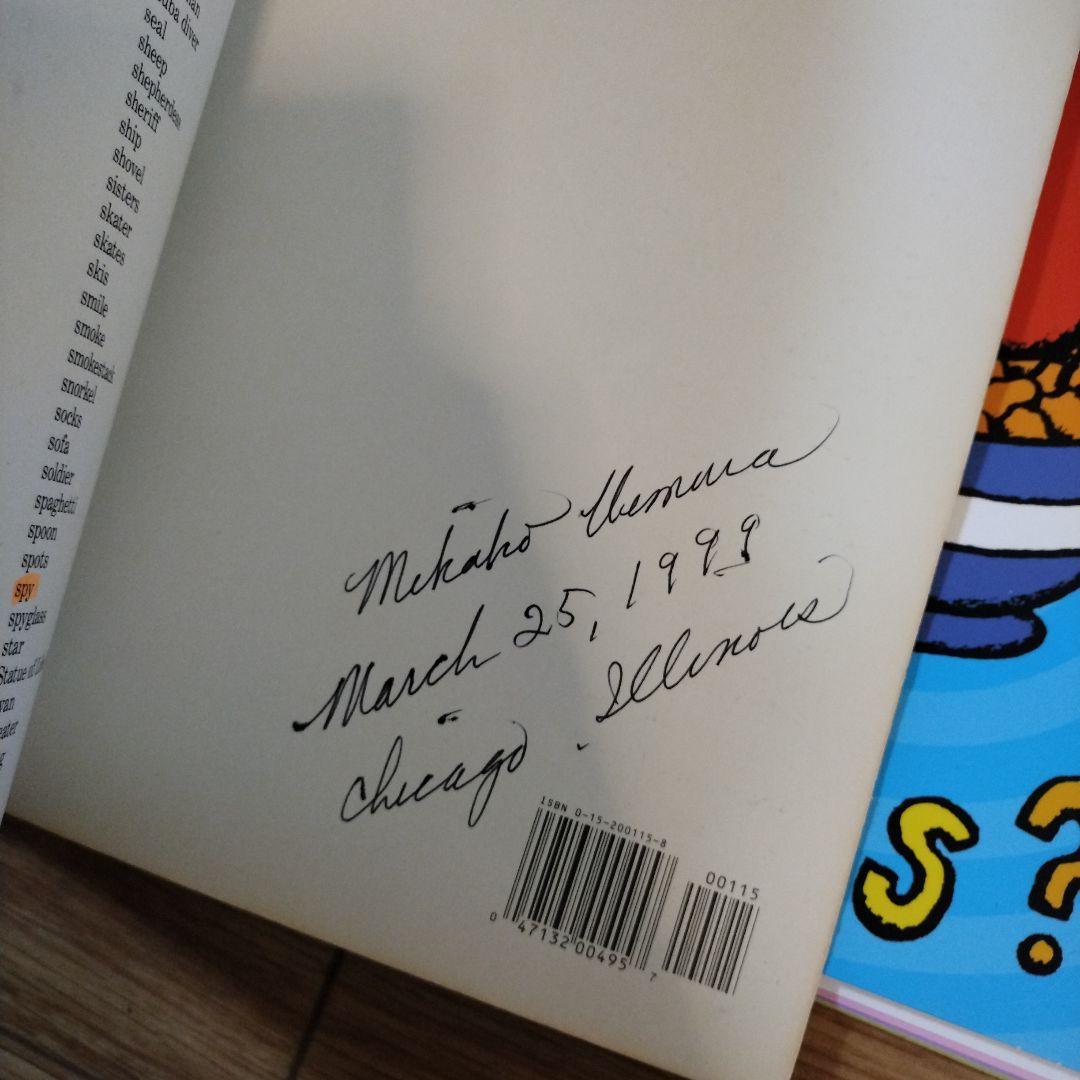 uba diver
seal
sheep
shepherdess
sheriff
ship
shovel
sisters
skater
skates
skis
smile
smoke
smokestack
snorkel
socks
sofa
soldier
spaghetti
spoon
spots
spy
spyglass
star
Statue of
van
eater
Mikako Uemura
March 25, 1999
Chicago. Illinois
ISBN 0-15-200115-8
00115
0 47132 00495 7
S?